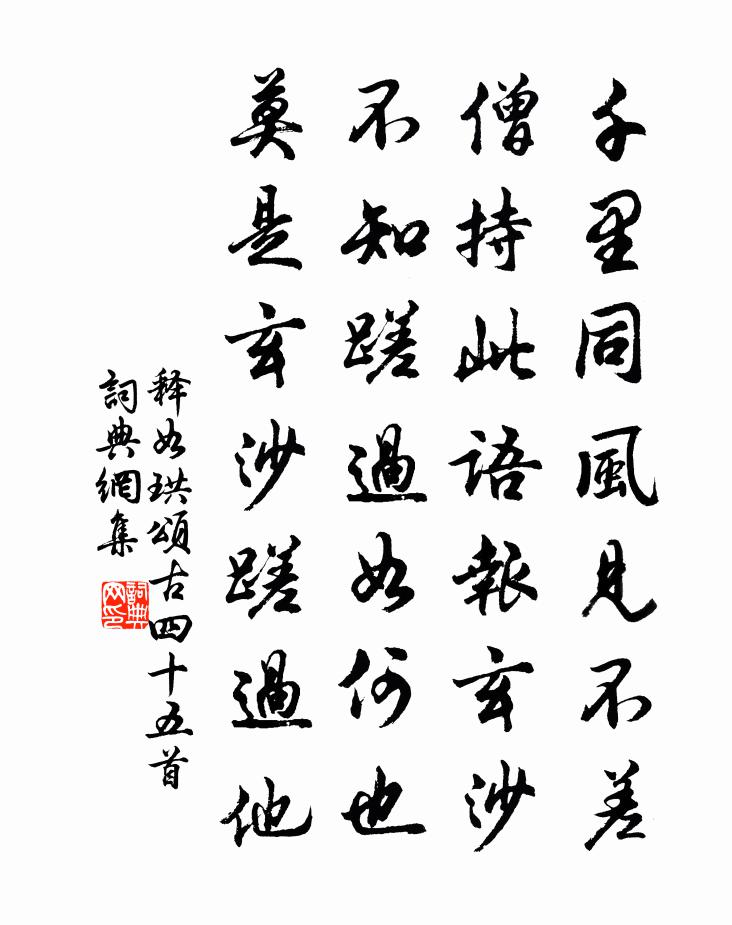 千里同風見不差
僧持此語報玄沙
不知蹉過如何也
莫是玄沙蹉過他
释如珙頌古四十五首
詞典網集
詞典
网印